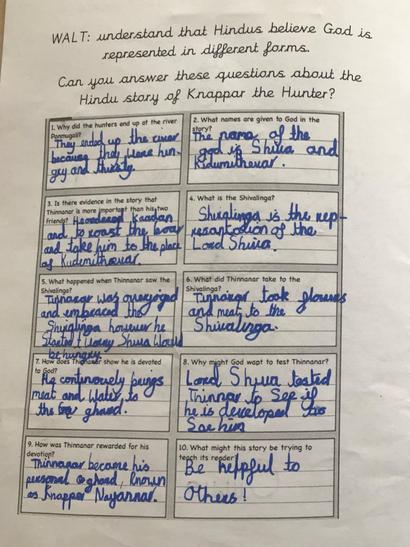 WALT: understand that Hindus believe God is
represented in different forms.
Can you answer these questions about the
Hindu story of Knappar the Hunter?
1. Why did the hunters end up at the river
Ponmugali?
They ended up the river
because that were hun-
gry and thirsty.
2. What names are given to God in the
story?
The name of the
god is Shiva and
Kudumithevar.
3. Is there evidence in the story that
Thinnanar is more important than his two
friends?
Kaadan
and to roast the boar
and take him to the place
of Kudimithevar.
4. What is the Shivalinga?
Shivlinga is the rep-
resantation of the
Lord Shiva.
5. What happened when Thinnanar saw the
Shivalinga?
Tinnanar was overjoyed
and embraced the
Shivlinga however he
started worry Shiva would
be hungry.
6. What did Thinnanar take to the
Shivalinga?
Tinnanar took flowers
and meat to the
Shivalinga.
7. How does Thinnanar show he is devoted
to God?
He continously brings
meat and water to
the ghard.
8. Why might God want to test Thinnanar?
Lord Shiva tested
Thinnar to See if
he is developed to
See him
9. How was Thinnanar rewarded for his
devotion?
Thinnanar became his
personal ghard, known
as Knappar Nayannar.
10. What might this story be trying to
teach its reader?
Be helpful to
others!